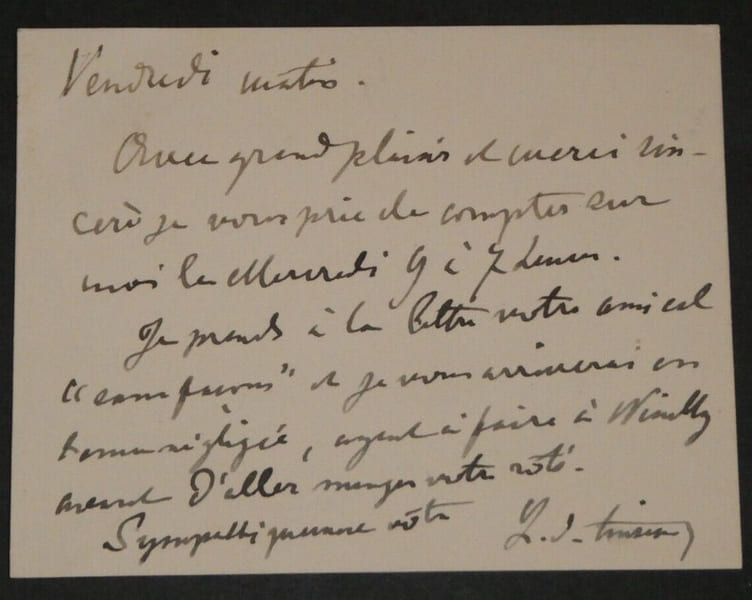 Vendredi matin.
Avec grand plaisir et merci sin-
cère je vous prie de compter sur
moi le Mercredi 9 à 7 heures.
Je prends à la lettre votre amical
"sans façons" et je vous arriverai en
tenue négligée, ayant à faire à Neuilly
avant d'aller manger votre rôti.
Sympathiquement vôtre
L. de